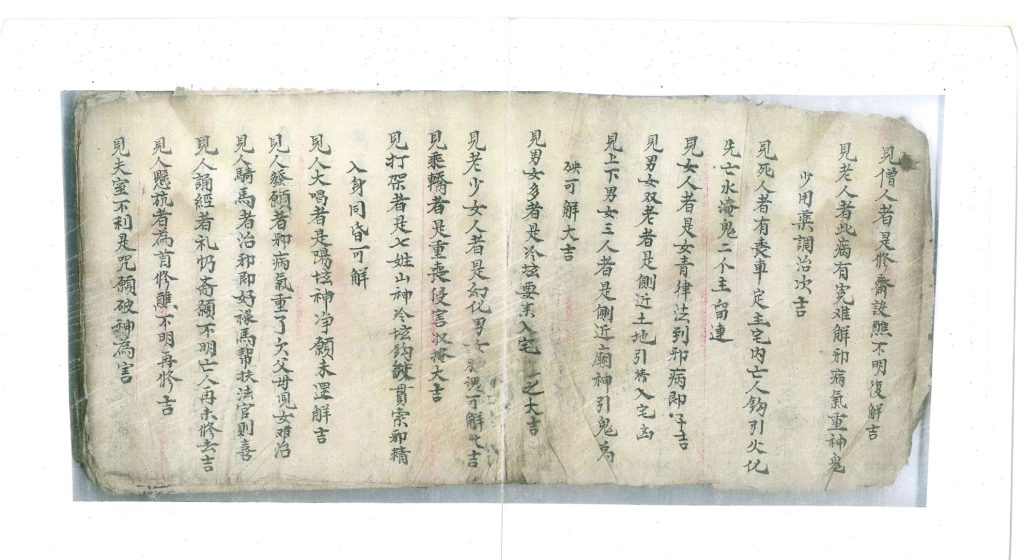 見僧人者是修齋設醮不明復解吉
見老人者此病有冤难解邪病氣重神鬼
少用藥調治次吉
見死人者有喪車定主宅内亡人鈎引火化
先亡水淹鬼二个主留連
見女人者是女青律法到邪病即子吉
見男女双老者是側近土地引侍入宅凶
見上下男女三人者是側近廟神引鬼為
殃可解大吉
見男女多者是冷坛要来入宅之大吉
見老少女人者是幻化男女 魂可解七吉
見乘轎者是重喪侵害 大吉
見打架者是七姓山神冷坛鈎 貫索邪精
入身同昏可解
見人大唱者是陽坛神净願未還解吉
見人發願者邪病氣重了欠父母兒女难治
見人騎馬者治邪即好祿馬幫扶法官則喜
見人誦經者礼忏斋願不明亡人再未修去吉
見人懸 者為前修醮不明再修吉
見夫室不利是咒願破神為害